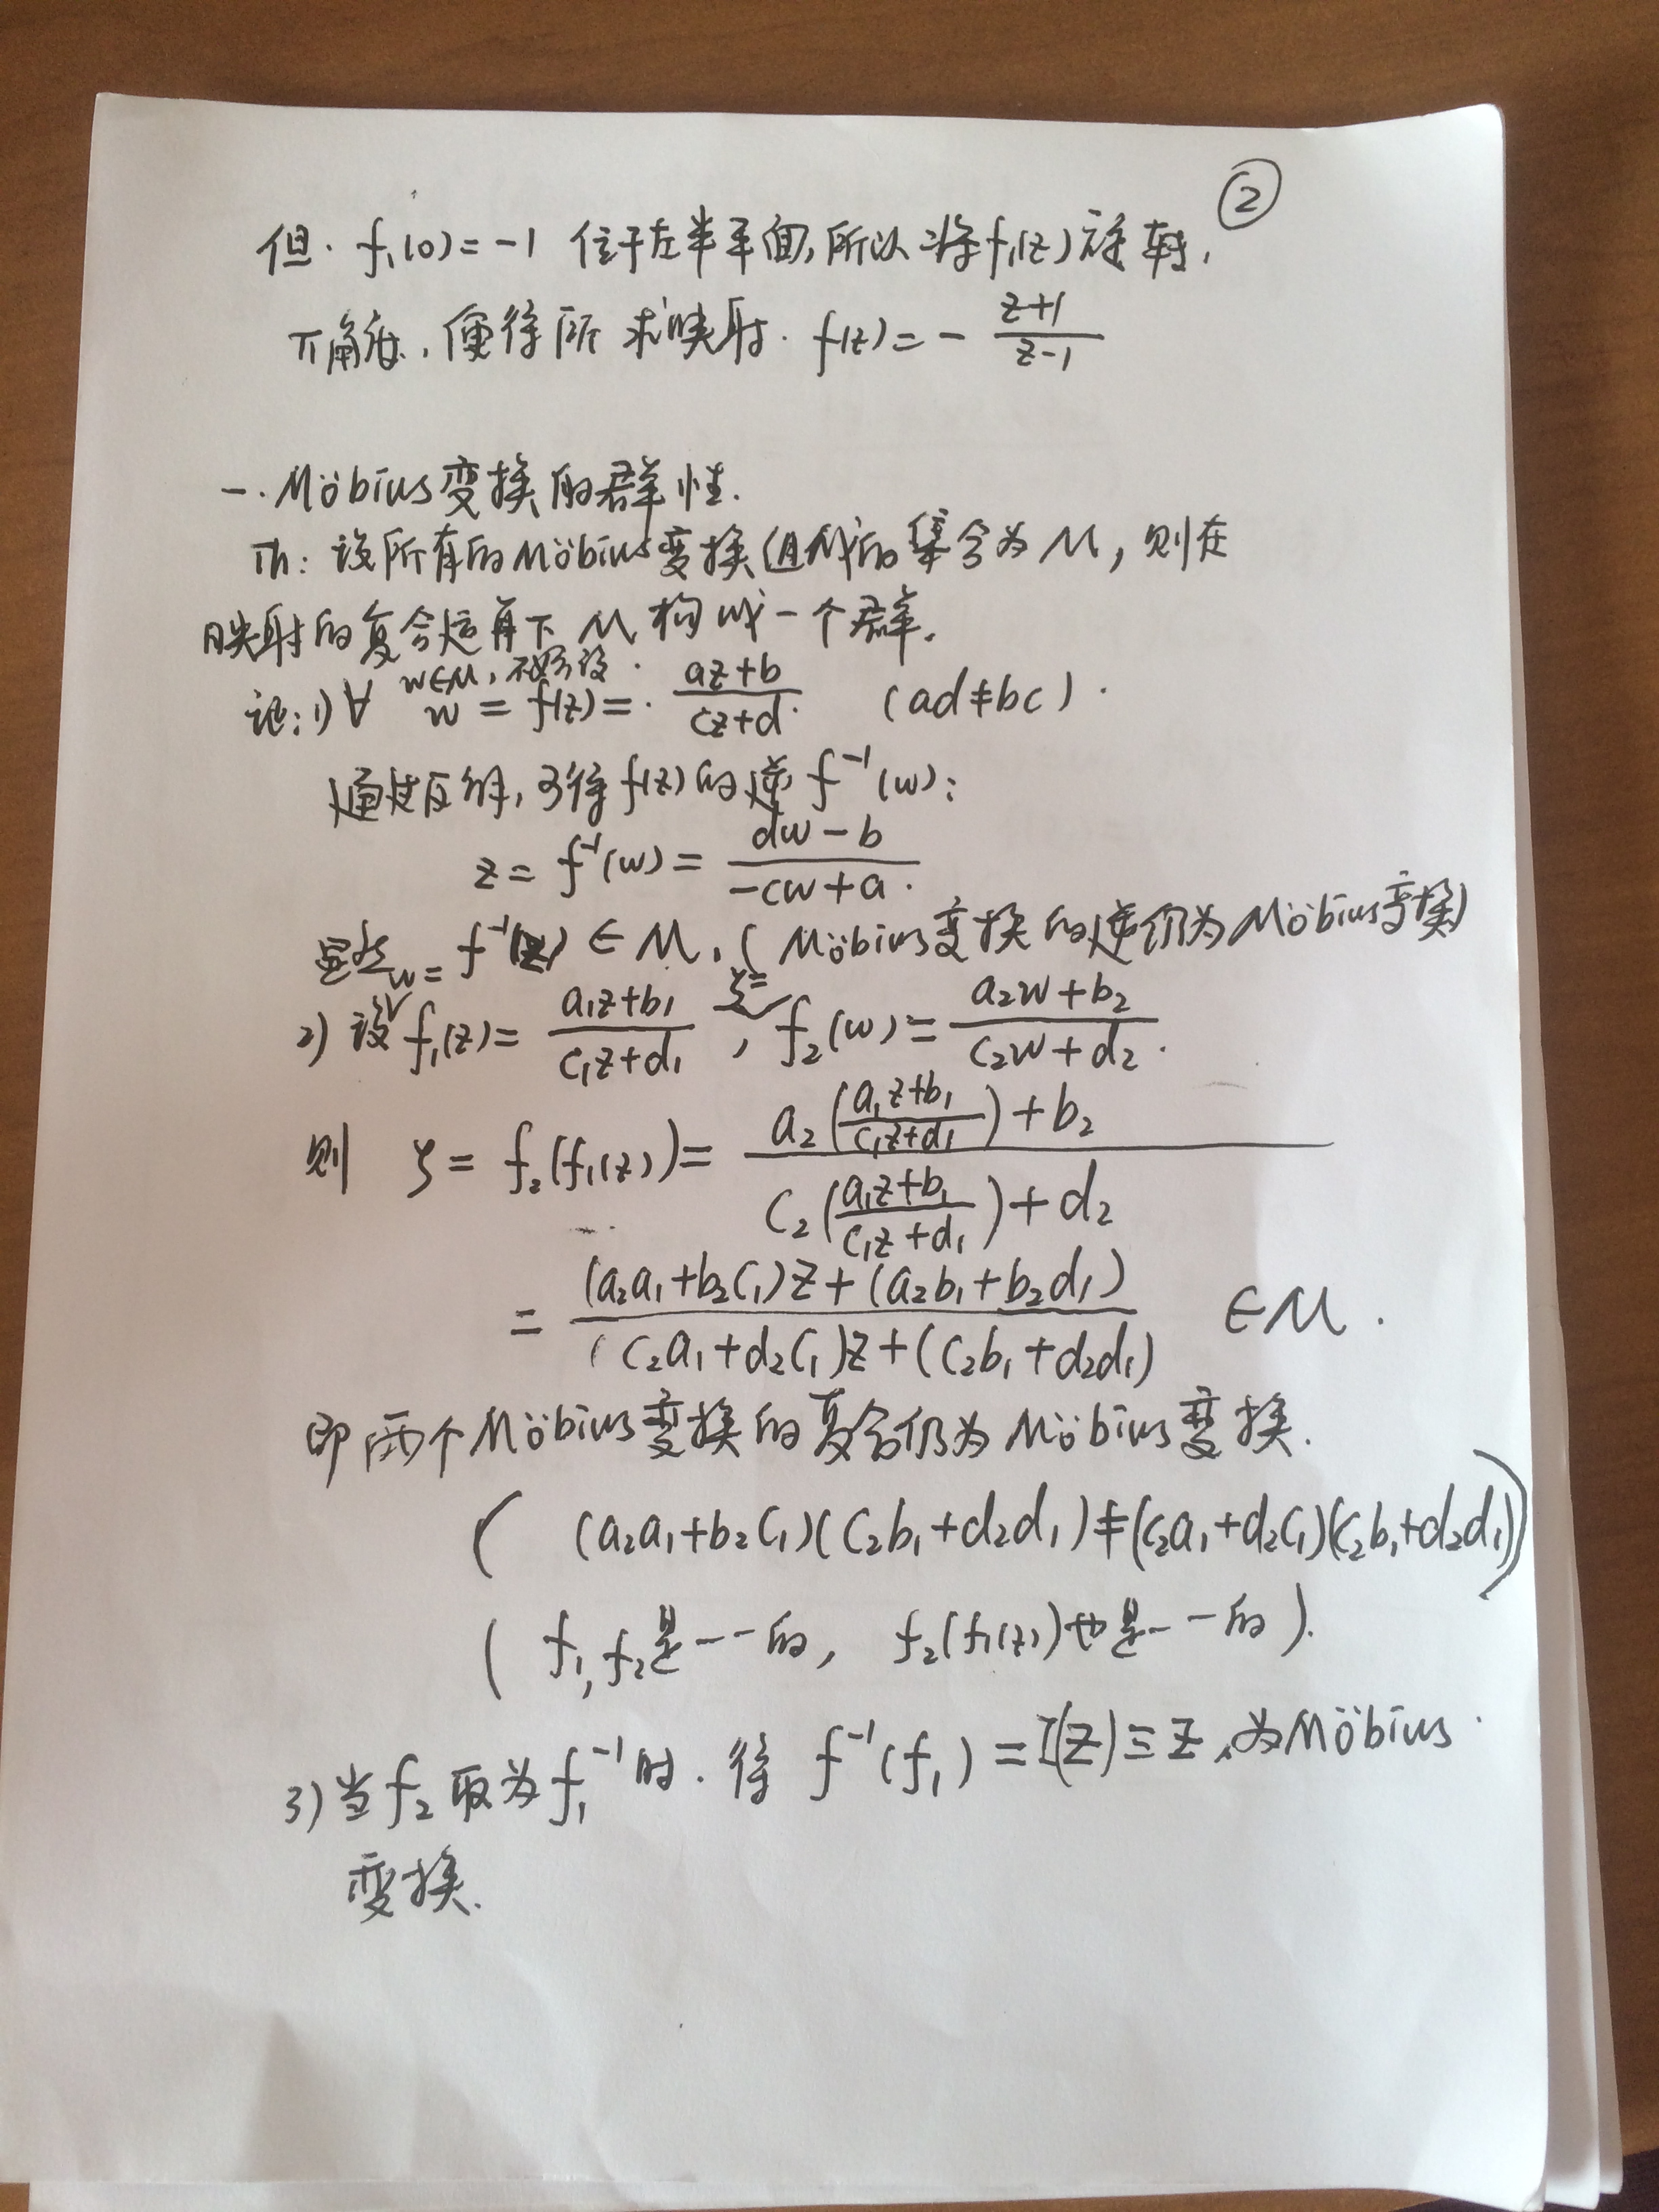 ②
但. f₁(0)=-1 位于左半平面,所以将f₁(z)旋转,
π角度,便得所求映射. f(z)=-\frac{z+1}{z-1}
一. Möbius变换的群性.
Th: 设所有的Möbius变换组成的集合为M, 则在
映射的复合运算下M构成一个群.
w∈M, 不妨设.
证: 1) ∀ w=f(z)=\frac{az+b}{cz+d} (ad≠bc).
通过反解,可得f(z)的逆f⁻¹(w):
z=f⁻¹(w)=\frac{dw-b}{-cw+a}.
显然 f⁻¹(z)∈M, (Möbius变换的逆仍为Möbius变换)
2) 设 w=f₁(z)=\frac{a₁z+b₁}{c₁z+d₁}, ζ=f₂(w)=\frac{a₂w+b₂}{c₂w+d₂}.
则 ζ=f₂(f₁(z))=\frac{a₂(\frac{a₁z+b₁}{c₁z+d₁})+b₂}{c₂(\frac{a₁z+b₁}{c₁z+d₁})+d₂}
=\frac{(a₂a₁+b₂c₁)z+(a₂b₁+b₂d₁)}{(c₂a₁+d₂c₁)z+(c₂b₁+d₂d₁)} ∈M.
即两个Möbius变换的复合仍为Möbius变换.
( (a₂a₁+b₂c₁)(c₂b₁+d₂d₁)≠(c₂a₁+d₂c₁)(c₂b₁+d₂d₁))
( f₁,f₂是一一的, f₂(f₁(z))也是一一的).
3)当f₂取为f₁⁻¹时. 得 f⁻¹(f₁)=I(z)≡z,为Möbius
变换.